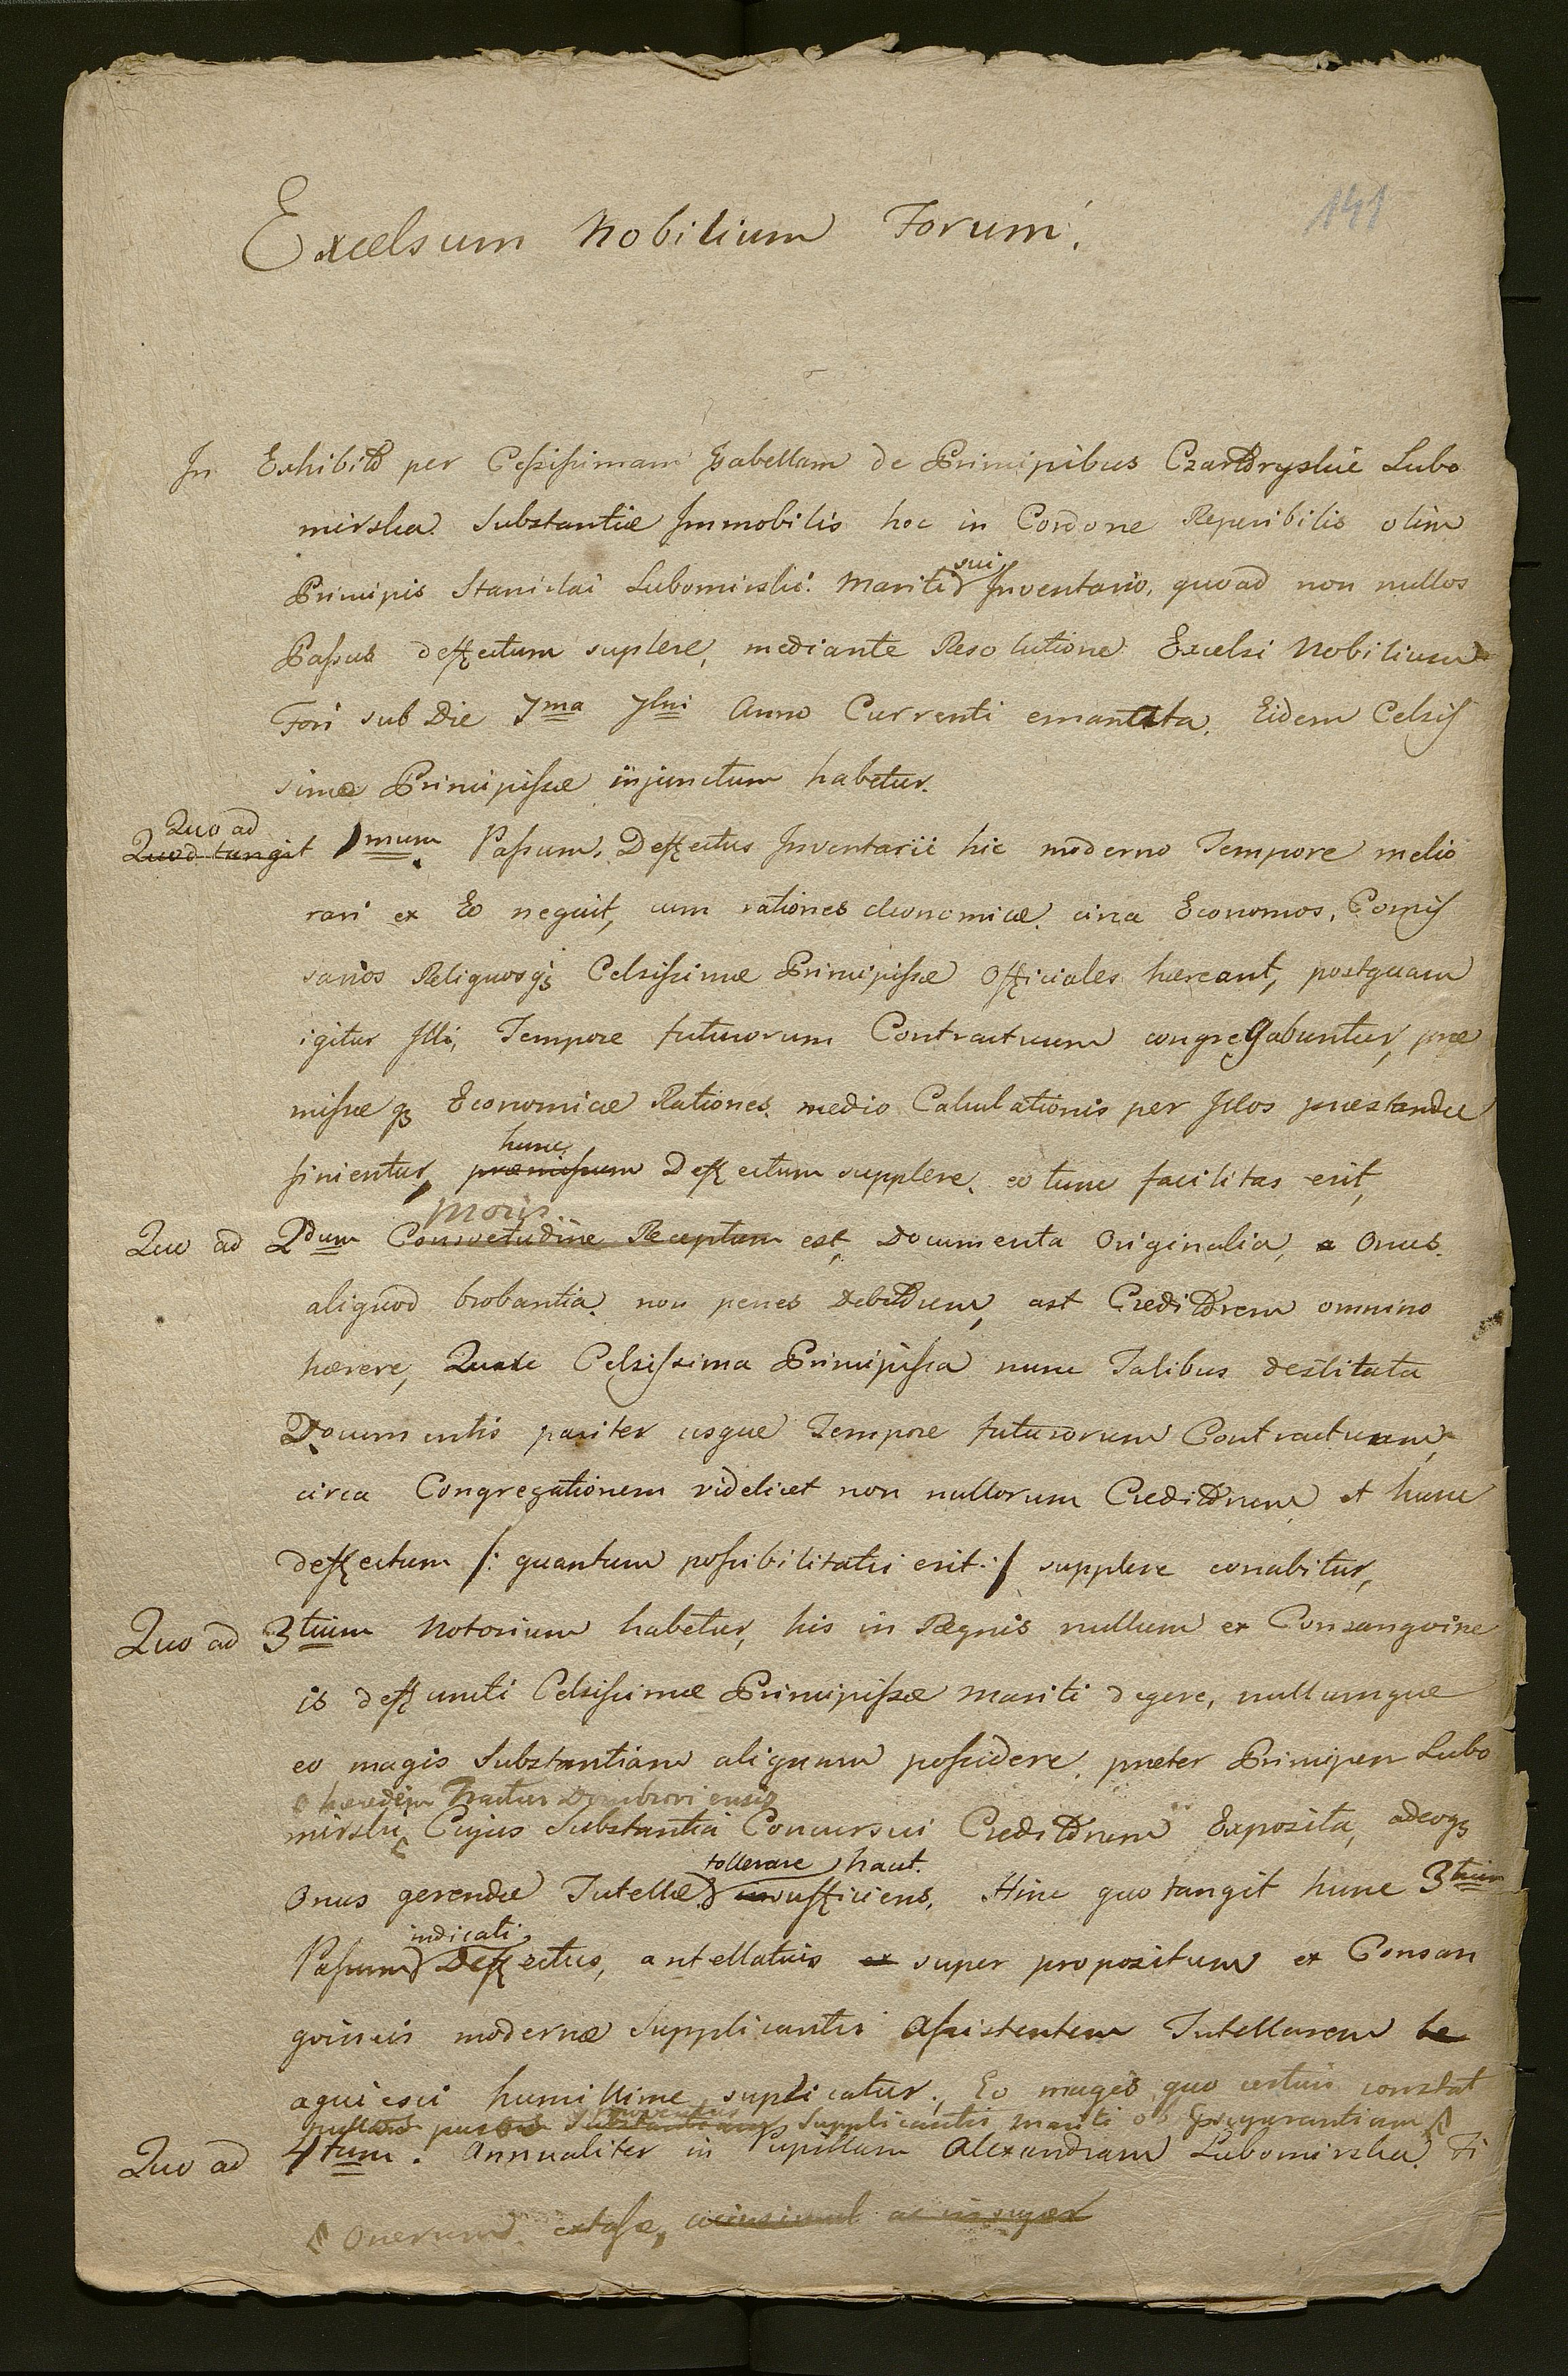 141
Excelsum Nobilium Forum.
In Exhibito per Celsissimam Isabellam de Principibus Czartoryskie Lubo
mirska. Substantiæ Immobilis hoc in Cordone Reperibilis olim
Principis Stanislai Lubomirski. Mariti sui Inventario, quoad non nullos
Passus deffectum suplere, mediante Resolutione Excelsi Nobilium
Fori sub Die 7ma 7bris Anno Currenti emanata. Eidem Celsis
simæ Principissæ injunctum habetur.
Quo ad
Quod tangit 1mum Passum. Deffectus Inventarii hic moderno Tempore melio
rari ex Eo nequit, cum rationes œconomicæ circa Economos, Comis
sarios Reliquosq3 Celsissimæ Principissæ Officiales hæreant, postquam
igitur Illi, Tempore futurorum Contractuum congregabuntur, præ
missæq3 Economicæ Rationes medio Calculationis per Illos præstandæ
finientur, hunc
præmissum Deffectum supplere eo tunc facilitas erit,
Moris
Quo ad 2dum Consvetudine Receptum est, Documenta Originalia, Onus
aliquod probantia non penes Debitorem, ast Creditorem omnino
hærere, Quare Celsissima Principissa nunc Talibus destituta
Documentis pariter usque Tempore futurorum Contractuum,
circa Congregationem videlicet non nullorum Creditorum et hunc
deffectum /: quantum possibilitatis erit :/ supplere conabitur,
Quo ad 3tium Notorium habetur, his in Regnis nullum ex Consangvine
is deffuncti Celsissimæ Principissæ Mariti degere, nullumque
eo magis Substantiam aliquam possidere præter Principem Lubo
hæredem Tractus Dombroviensis
mirski Cujus Substantia Concursui Creditorum Exposita, adeoq3
tollerare haut.
Onus gerendæ Tutellæ insufficiens. Hinc quo tangit hunc 3tium
indicati
Passum Deffectus, antellatuis ex super propositum ex Consan
gvineis modernæ Supplicantis Assistentem Tutellarem
aquiesci humillime suplicatur. Eo magis quo certius constat
nullas Supplicantis mariti ob
Quo ad 4tum. Annualiter in Pupillam Alexandram Lubomirska. Fi
Onerum extasse, ac insuper